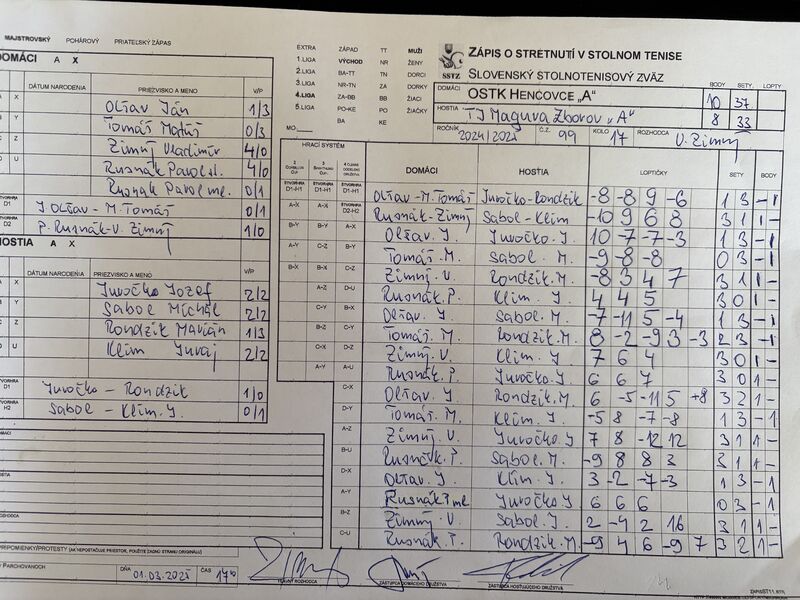 MAJSTROVSKÝ POHÁROVÝ PRIATEĽSKÝ ZÁPAS
DOMÁCI A X
DÁTUM NARODENIA PRIEZVISKO A MENO V/P
X Oľšav Ján 1/3
Y Tomáš Matúš 0/3
Z Zimný Vladimír 4/0
U Rusnák Pavol st. 4/0
Rusnák Pavol ml. 0/1
D1 J Oľšav - M. Tomáš 0/1
D2 P. Rusnák - V. Zimný 1/0
HOSTIA A X
DÁTUM NARODENIA PRIEZVISKO A MENO V/P
X Juročko Jozef 2/2
Y Sabol Michal 2/2
Z Rondzik Marián 1/3
U Klim Juraj 2/2
D1 Juročko - Rondzik 1/0
H2 Sabol - Klim. J. 0/1
PRIPOMIENKY/PROTESTY (AK NEPOSTAČUJE PRIESTOR, POUŽITE ZADNÚ STRANU ORIGINÁLU)
Parchovanoch DŇA 01.03.2025 ČAS 17
EXTRA ZÁPAD TT MUŽI
1.LIGA VÝCHOD NR ŽENY
2.LIGA BA-TT TN DORCI
3.LIGA NR-TN ZA DORKY
4.LIGA ZA-BB BB ŽIACI
5.LIGA PO-KE PO ŽIAČKY
BA KE
MO
SSTZ
ZÁPIS O STRETNUTÍ V STOLNOM TENISE
SLOVENSKÝ STOLNOTENISOVÝ ZVÄZ
BODY SETY. LOPTY
DOMÁCI OSTK HENCOVCE „A" 10 37
HOSTIA TJ Maguva Zborov "A" 8 33
ROČNÍK 2024/2025 Č.Z. 99 KOLO 17 ROZHODCA V. Zimný
HRACÍ SYSTÉM
DOMÁCI HOSŤIA LOPTIČKY SETY BODY
D1-H1 D1-H1 D1-H1 Oľšav - M. Tomáš Juročko - Rondzik -8 -8 9 -6 1 3 - 1
A-X A-X D2-H2 Rusnák - Zimný Sabol - Klim -10 9 6 8 3 1 1 -
B-Y B-Y A-X Oľšav. J. Juročko. J. 10 -7 -7 -3 1 3 - 1
A-Y C-Z B-Y Tomáš. M. Sabol. M. -9 -8 -8 0 3 - 1
B-X B-X C-Z Zimný. V. Rondzik. M. -8 3 4 7 3 1 1 -
A-Z D-U Rusnák. P. Klim. J. 4 4 5 3 0 1 -
C-Y B-X Oľšav. J. Sabol. M. -7 -11 5 -4 1 3 - 1
B-Z C-Y Tomáš. M. Rondzik. M. 8 -2 -9 3 -3 2 3 - 1
C-X D-Z Zimný. V. Klim. J 7 6 4 3 0 1 -
A-Y A-U Rusnák. P. Juročko. J. 6 6 7 3 0 1 -
C-X Oľšav. J Rondzik. M. 6 -5 -11 5 +8 3 2 1 -
D-Y Tomáš. M. Klim. J. -5 8 -7 -8 1 3 - 1
A-Z Zimný. V. Juročko. J 7 8 -12 12 3 1 1 -
B-U Rusnák. P. Sabol. M. -9 8 8 3 3 1 1 -
D-X Oľšav. J. Klim. J. 3 -2 -7 -3 1 3 - 1
A-Y Rusnák P ml. Juročko. J 6 6 6 0 3 - 1
B-Z Zimný. V. Sabol. J. 2 -4 2 16 3 1 1 -
C-U Rusnák. P. Rondzik. M. -9 4 6 -9 7 3 2 1 -
HLAVNÝ ROZHODCA ZÁSTUPCA DOMÁCEHO DRUŽSTVA ZÁSTUPCA HOSŤUJÚCEHO DRUŽSTVA